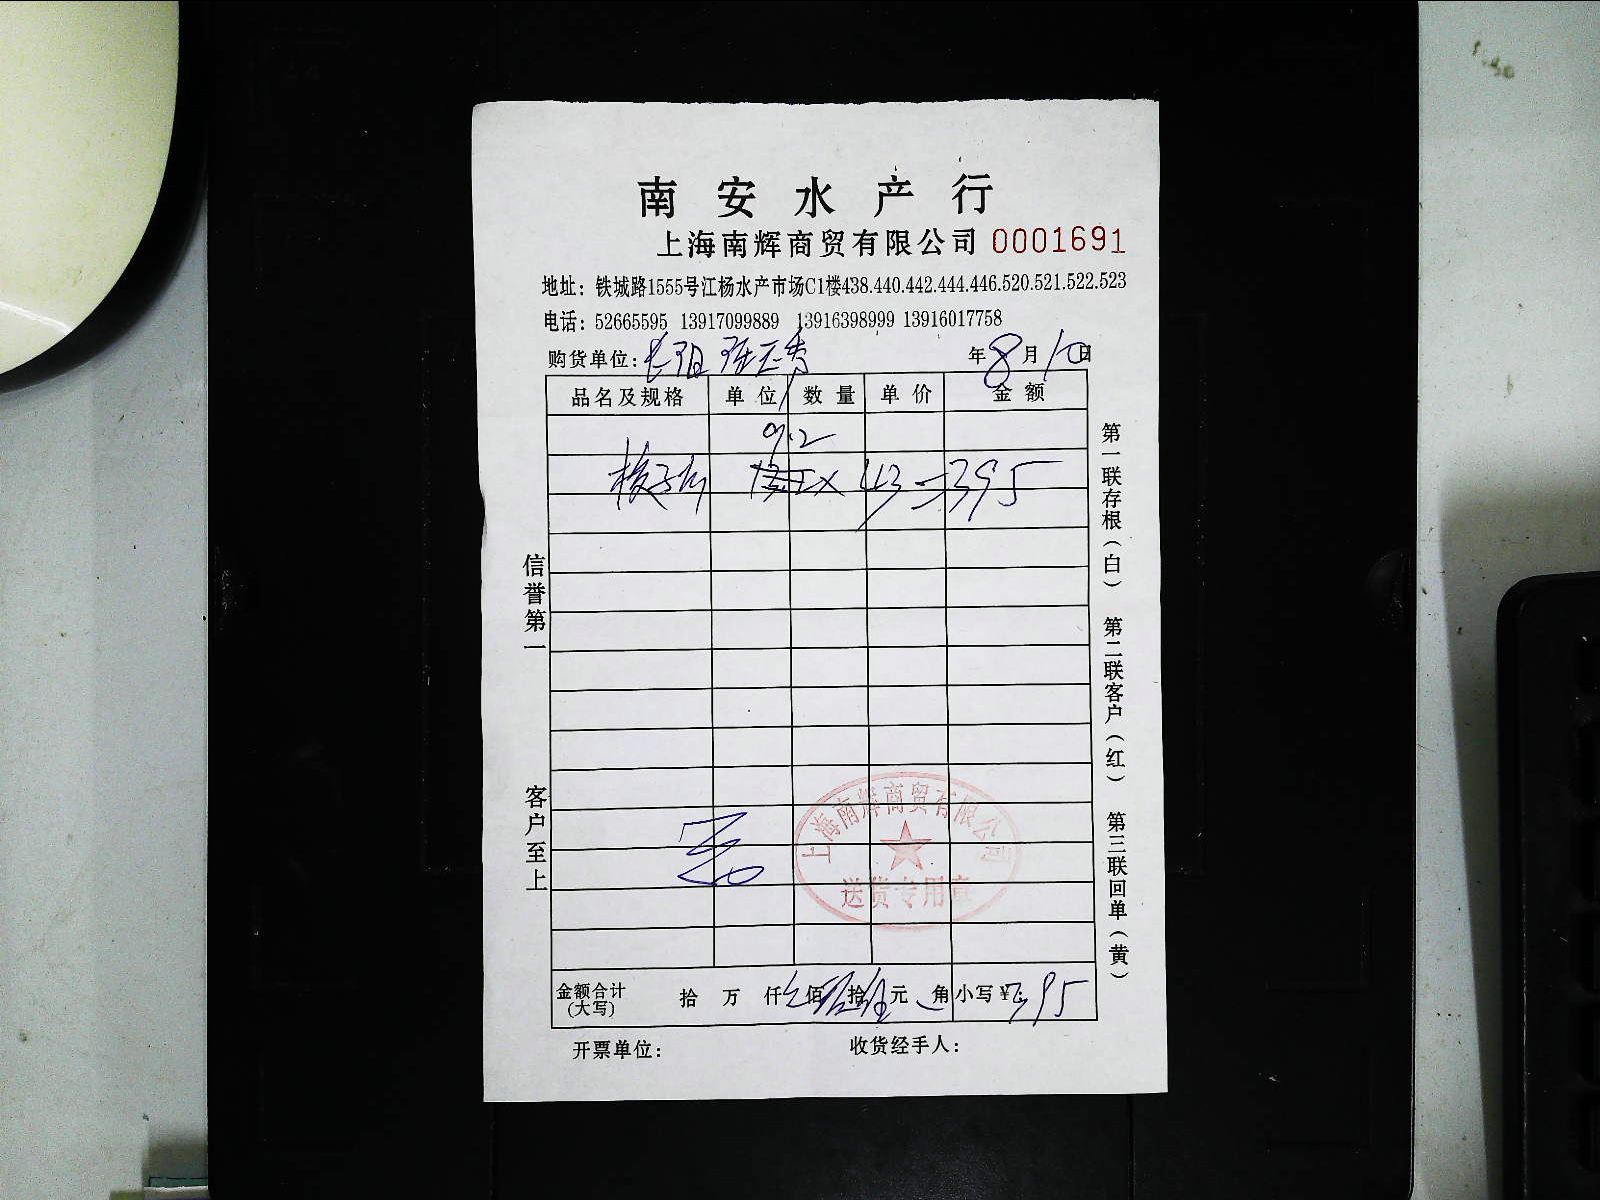 南安水产行
上海南辉商贸有限公司 0001691
地址：铁城路1555号江杨水产市场C1楼438.440.442.444.446.520.521.522.523
电话：52665595 13917099889 13916398999 13916017758
购货单位： 年8月10日
品名及规格 单位 数量 单价 金额
9.2
43=395
信誉第一
客户至上
第一联存根（白） 第二联客户（红） 第三联回单（黄）
上海南辉商贸有限公司
送货专用章
金额合计（大写） 拾 万 仟 佰 拾 元 角 小写¥：395
开票单位： 收货经手人：